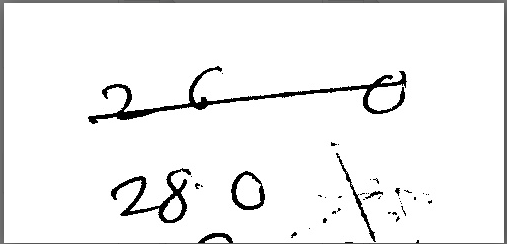 2 6 0
28 0